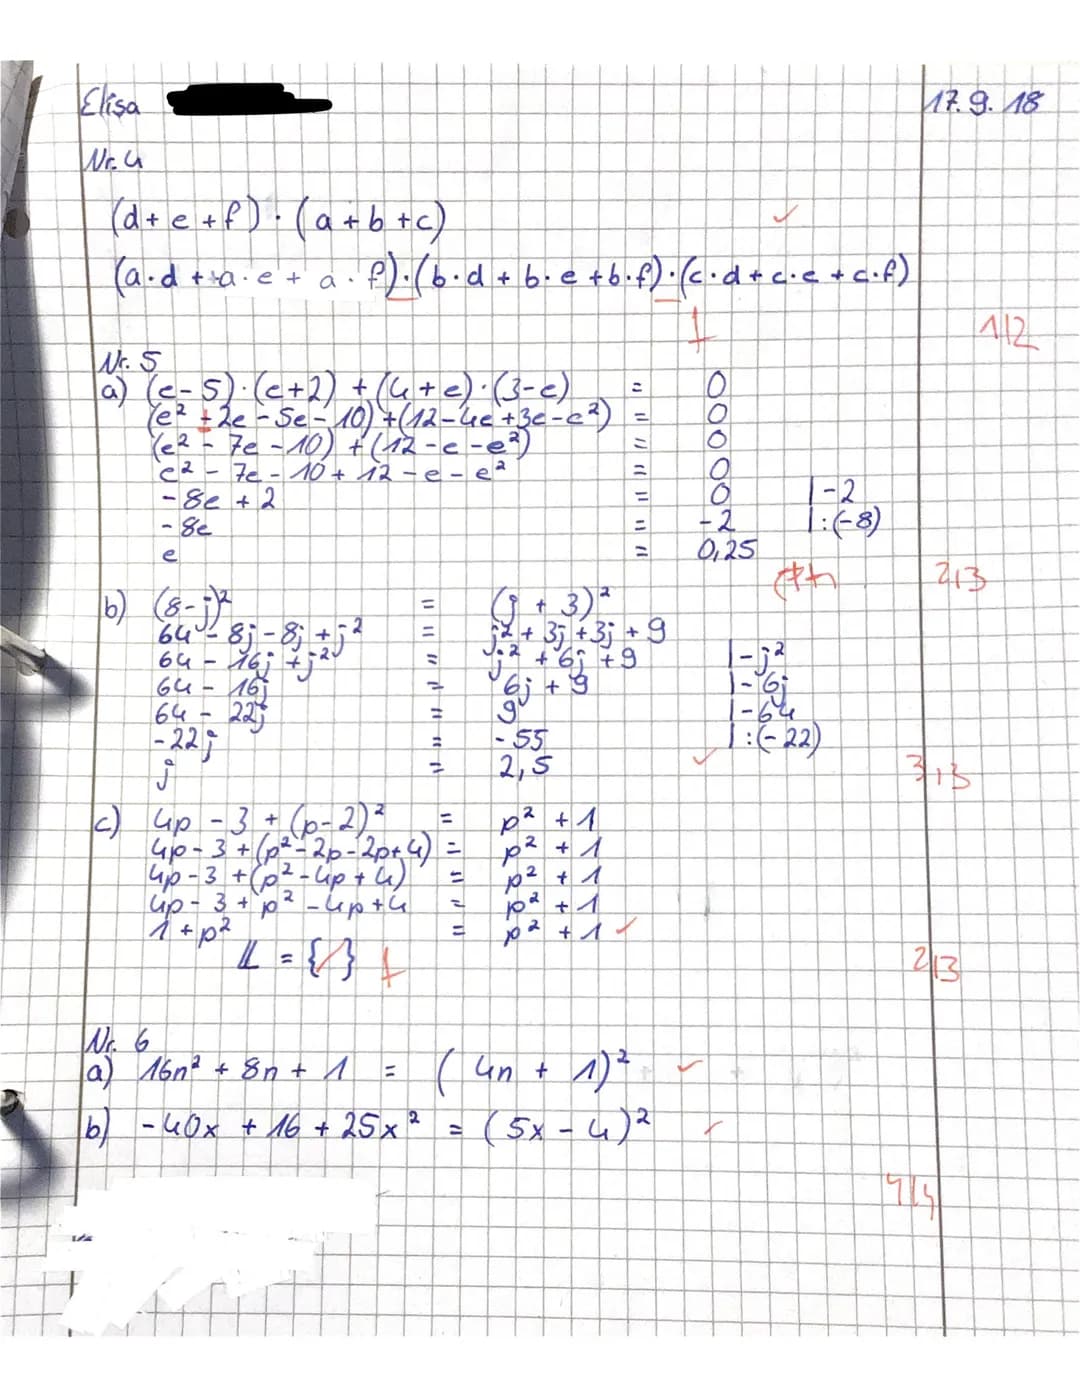 Elisa
17.9.18
Nr. 4
(d + e + f) · (a + b + c) ✓
(a·d + a·e + a·f)·(b·d + b·e + b·f)·(c·d + c·e + c·f)
f 1/2
Nr. 5
a) (e - 5)·(e + 2) + (4 + e)·(3 - e) = 0
(e² + 2e - 5e - 10) + (12 - 4e + 3e - e²) = 0
(e² - 7e - 10) + (12 - e - e²) = 0
e² - 7e - 10 + 12 - e - e² = 0
-8e + 2 = 0 | -2
-8e = -2 | :(-8)
e = 0,25
2/3
b) (8 - j)² = (j + 3)²
64 - 8j - 8j + j² = j² + 3j + 3j + 9
64 - 16j + j² = j² + 6j + 9 | - j²
64 - 16j = 6j + 9 | - 6j
64 - 22j = 9 | - 64
-22j = -55 | :(-22)
j = 2,5 ✓
3/3
c) 4p - 3 + (p - 2)² = p² + 1
4p - 3 + (p² - 2p - 2p + 4) = p² + 1
4p - 3 + (p² - 4p + 4) = p² + 1
4p - 3 + p² - 4p + 4 = p² + 1
1 + p² = p² + 1 ✓
𝕃 = { } f 2/3
Nr. 6
a) 16n² + 8n + 1 = (4n + 1)² ✓
b) -40x + 16 + 25x² = (5x - 4)² ✓
4/4